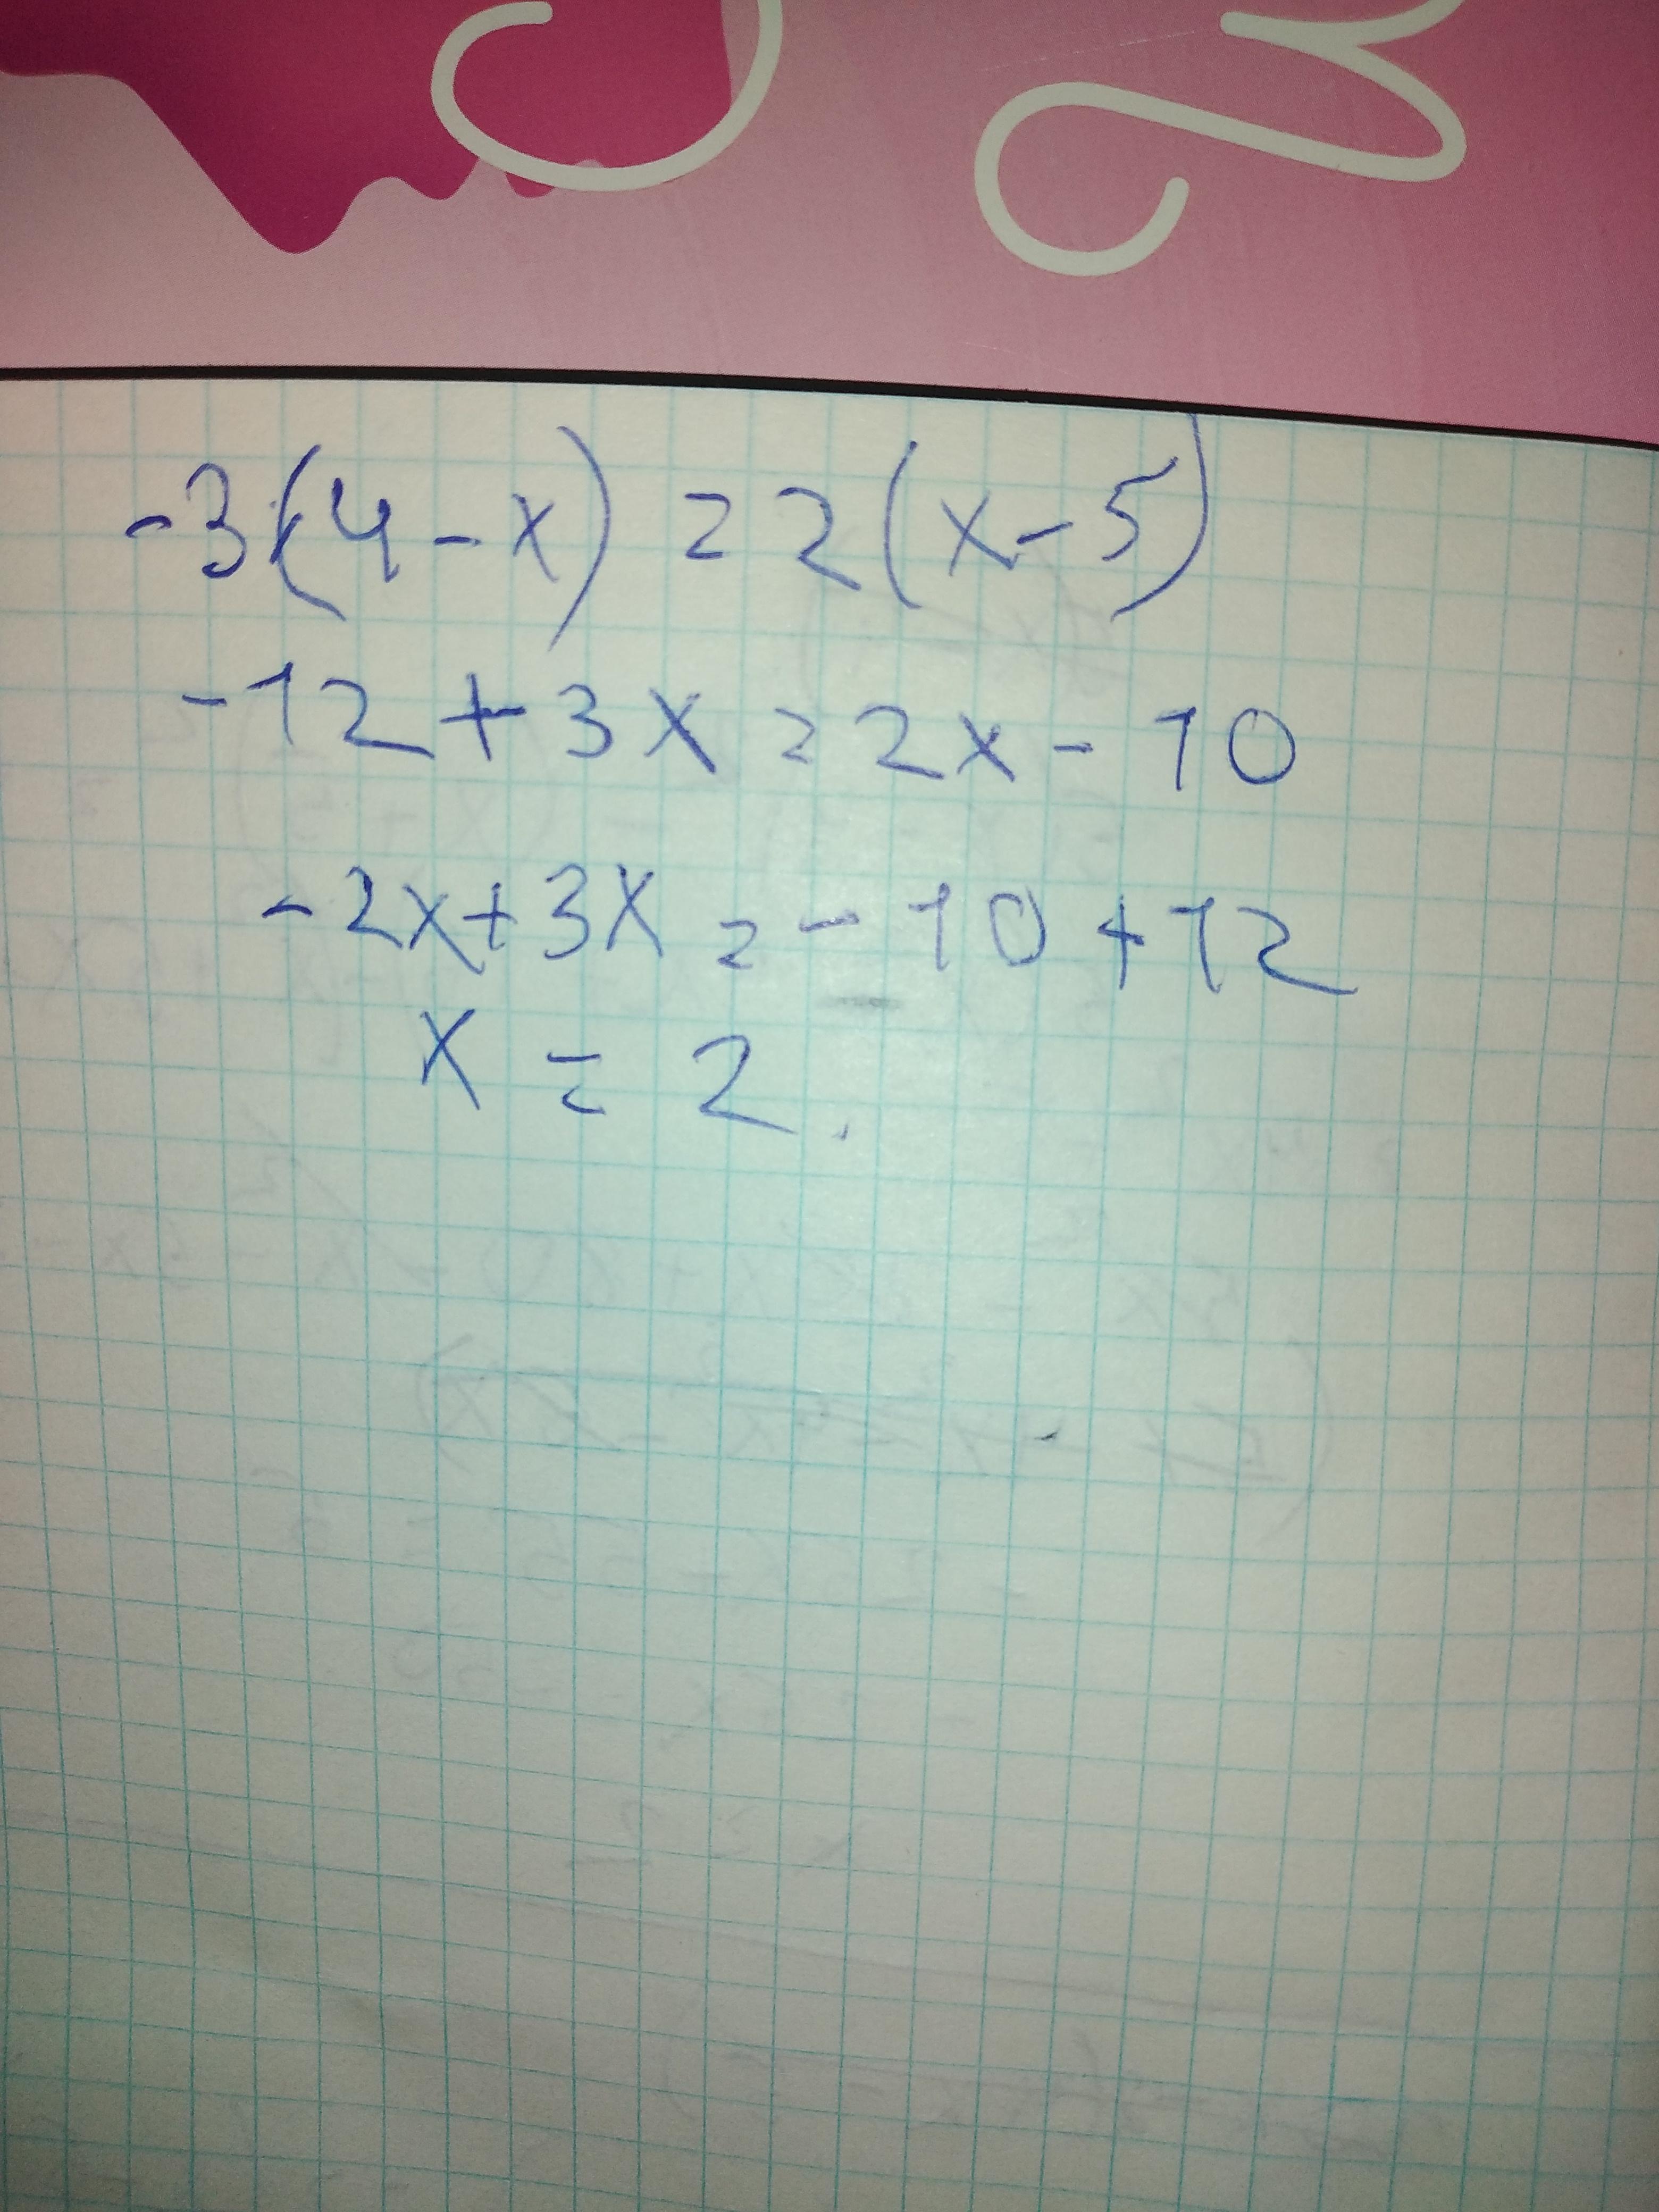 -3(4-x)=2(x-5)
-12+3x=2x-10
-2x+3x=-10+12
x=2.